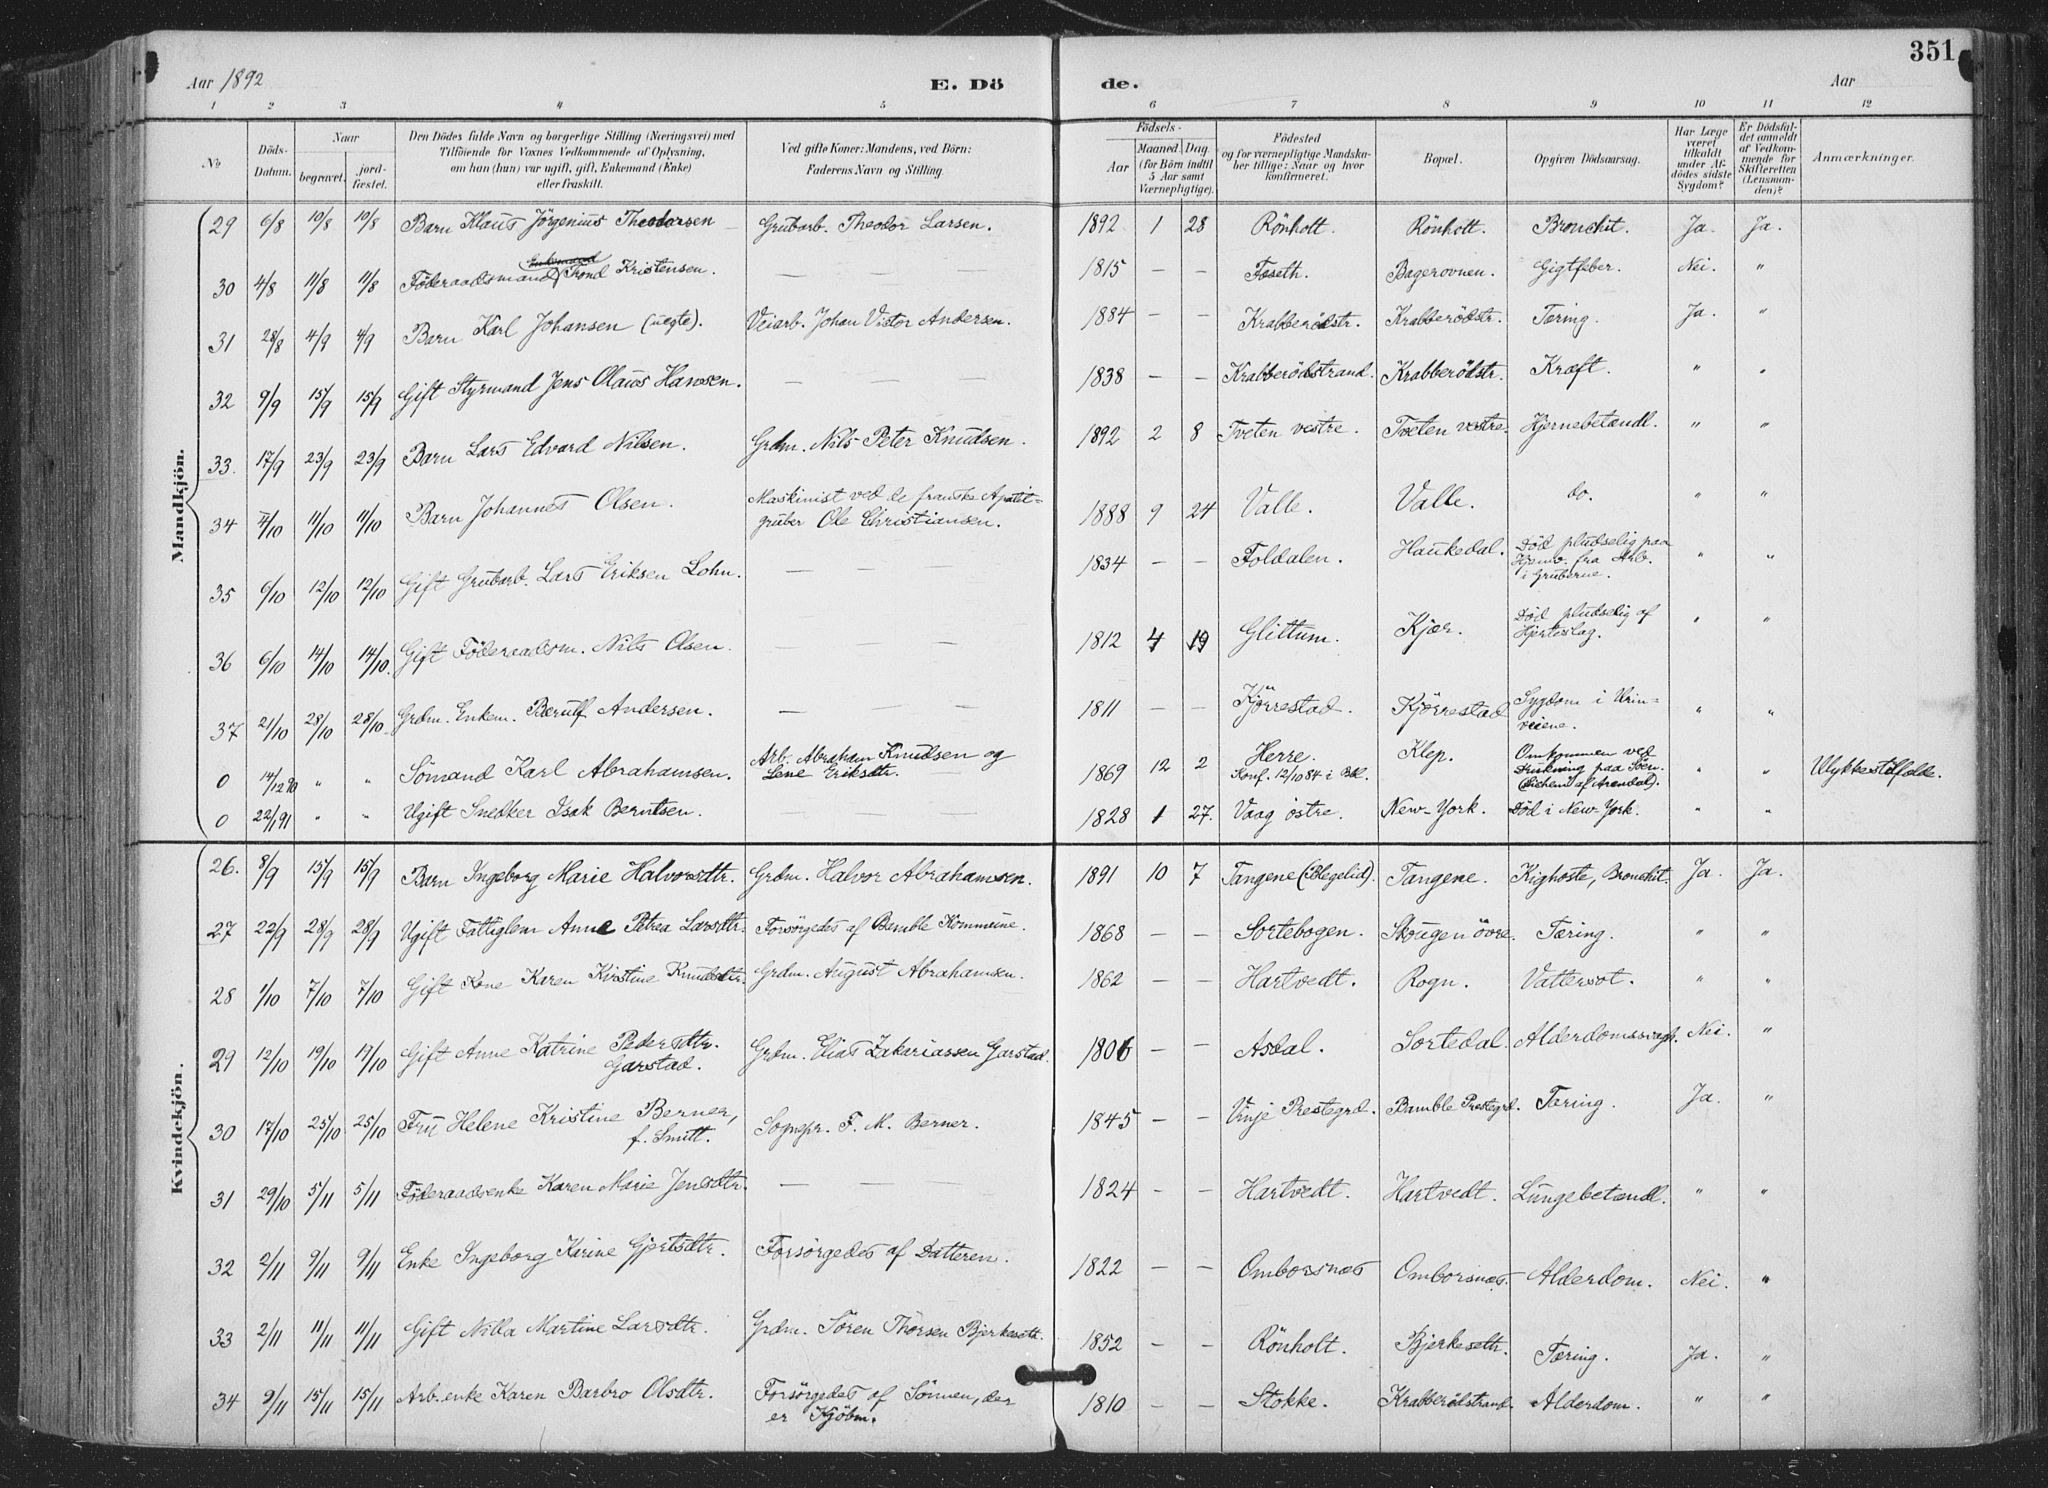 351
Aar 1892
E. Dö
de.
Aar
1 2 3 4 5 6 7 8 9 10 11 12
No
Döds-Datum.
Naar
begravet.
jord-fæstet.
Den Dödes fulde Navn og borgerlige Stilling (Næringsvei) med
Tilföiende for Voxnes Vedkommende af Oplysning,
om han (hun) var ugift, gift, Enkemand (Enke)
eller fraskilt.
Ved gifte Koner: Mandens, ved Börn:
Faderens Navn og Stilling
Födsels-
Aar
Maaned Dag
(for Börn indtil
5 Aar samt
Værnepligtige).
Födested
og for værnepligtige Mandska-
ber tillige: Naar og hvor
konfirmeret.
Bopæl.
Opgiven Dödsaarsag.
Har Læge
været
tilkaldt
under Af-
dödes sidste
Sygdom?
Er Dödsfal-
det anmeldt
af Vedkom-
mende for
Skifteretten
(Lensman-
den)?
Anmærkninger.
Mandkjön.
29 6/8 10/8 10/8 Barn Klaus Jörgenius Theodorsen Grubarb. Theodor Larsen. 1892 1 28 Rönholt. Rönholt. Bronchit. Ja. Ja.
Enkemand
30 4/8 11/8 11/8 Föderaadsmand Trond Kristensen. — — 1815 — — Foseth. Bagerovnen. Gigtfeber. Nei. "
31 28/8 4/9 4/9 Barn Karl Johansen (uegte). Veiarb. Johan Victor Andersen. 1884 — — Krabberödstr. Krabberödstr. Tæring. Ja. "
32 9/9 15/9 15/9 Gift Styrmand Jens Olaus Hansen. — — 1838 — — Krabberödstrand. Krabberödstr. Kræft. " "
33. 17/9 23/9 23/9 Barn Lars Edvard Nilsen. Grdm. Nils Peter Knudsen. 1892 2 8 Tveten vestre. Tveten vestre. Hjernebetændl. " "
34 4/10 11/10 11/10 Barn Johannes Olsen. Maskinist ved de franske Apatit-
gruber Ole Christiansen. 1888 9 24 Valle. Valle. do. " "
35 6/10 12/10 12/10 Gift Grubarb. Lars Eriksen Lohn. — — 1834 — — Foldalen. Haukedal. Död pludselig paa
Hjemv. fra Arb.
i Gruberne. " "
36 6/10 14/10 14/10. Gift Föderaadsm. Nils Olsen. — — 1812 4 19 Glittum. Kjær. Död pludselig af
Hjerteslag. " "
37 21/10 28/10 28/10 Grdm. Enkem. Berulf Andersen. — — 1811 — — Kjörrestad. Kjörrestad Sygdom i Urin-
veiene. " "
0 14/12 90 " " Sömand Karl Abrahamsen. Arb. Abraham Knudsen og
Lene Eriksdtr. 1869 12 2 Herre.
Konf. 12/10 84 i Bbl. Klep. Omkommen ved
Drukning paa Söen
af Arendal). " " Ulykkestilfælde.
0 22/1 91 " " Ugift Snedker Isak Berntsen. — — 1828 1 27. Vaag östre. New-York. Död i New-York. " "
Kvindekjön.
26. 8/9 15/9 15/9 Barn Ingeborg Marie Halvorsdtr. Grdm. Halvor Abrahamsen. 1891 10 7 Tangene (Blegelid). Tangene. Kighoste, Bronchit. Ja. Ja.
27 22/9 28/9 28/9 Ugift Fattiglem Anne Petrea Larsdtr. Forsörgedes af Bamble Kommune. 1868 — — Sortebogen. Skougen övre. Tæring. " "
28 1/10 7/10 7/10 Gift Kone Karen Kirstine Knudsdtr. Grdm. August Abrahamsen. 1862 — — Hartvedt. Rogn. Vattersot. " "
29 12/10 19/10 19/10 Gift Anne Katrine Pedersdtr.
Garstad. Grdm. Elias Zakariassen Garstad. 1806 — — Asdal. Sortedal. Alderdomssvagh. Nei. "
30 17/10 25/10 25/10 Fru Helene Kristine Berner,
f. Smitt. Sognepr. F. M. Berner. 1845 — — Vinje Prestegrd. Bamble Prestegrd. Tæring. Ja. "
31 29/10 5/11 5/11 Föderaadsenke Karen Marie Jensdtr. — — 1824 — — Hartvedt. Hartvedt. Lungebetændl. " "
32 2/11 9/11 9/11 Enke Ingeborg Karine Gjertsdtr. Forsörgedes af Datteren. 1822 — — Omborsnæs Omborsnæs. Alderdom. Nei. "
33 2/11 11/11 11/11 Gift Nilla Martine Larsdtr. Grdm. Sören Thorsen Bjerkeseth. 1852 — — Rönholt. Bjerkeseth. Tæring. Ja. "
34 9/11 15/11 15/11 Arb.enke Karen Barbro Olsdtr. Forsörgedes af Sönnen, der
er Kjöbm. 1810 — — Stokke. Krabberödstrand. Alderdom. " "